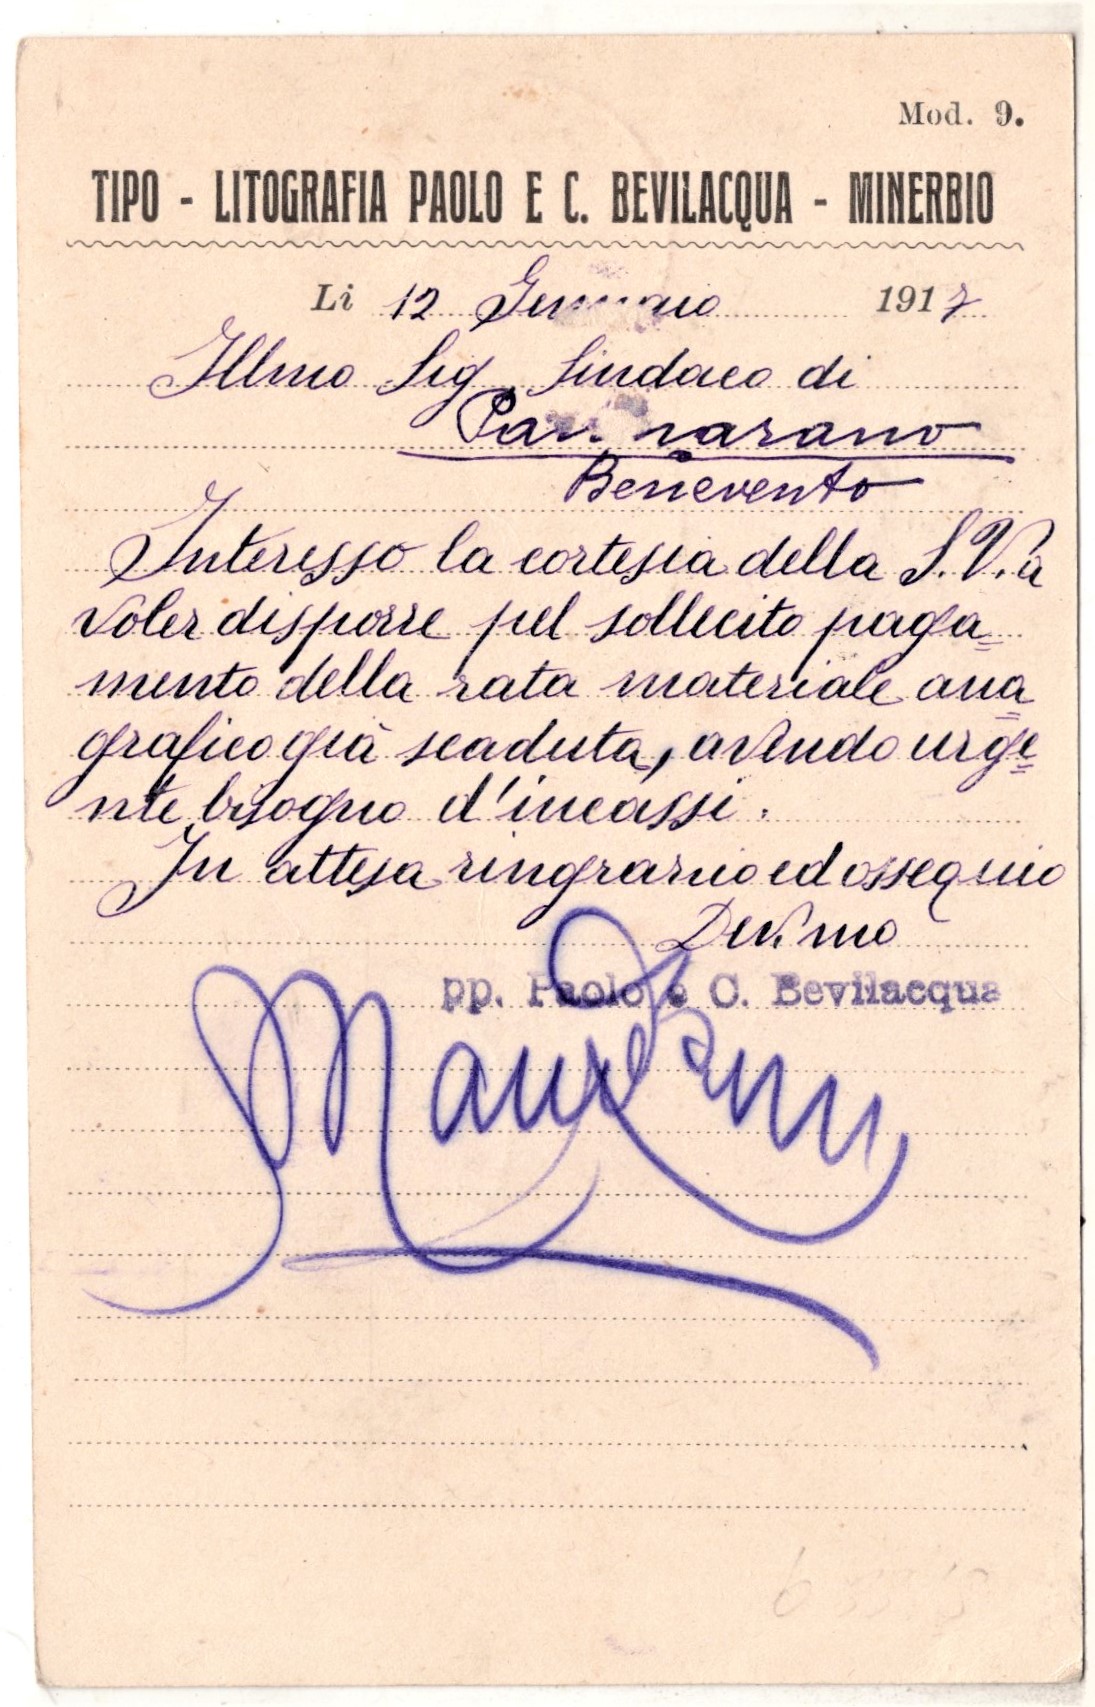 Mod. 9.
TIPO - LITOGRAFIA PAOLO E C. BEVILACQUA - MINERBIO
Li 12 Gennaio 1917
Illmo Sig. Sindaco di
Pannarano
Benevento
Interesso la cortesia della S.V. a
voler disporre pel sollecito paga=
mento della rata materiale ana=
grafico già scaduta, avendo urge=
nte bisogno d'incassi.
In attesa ringrazio ed ossequio
Dev.mo
pp. Paolo e C. Bevilacqua